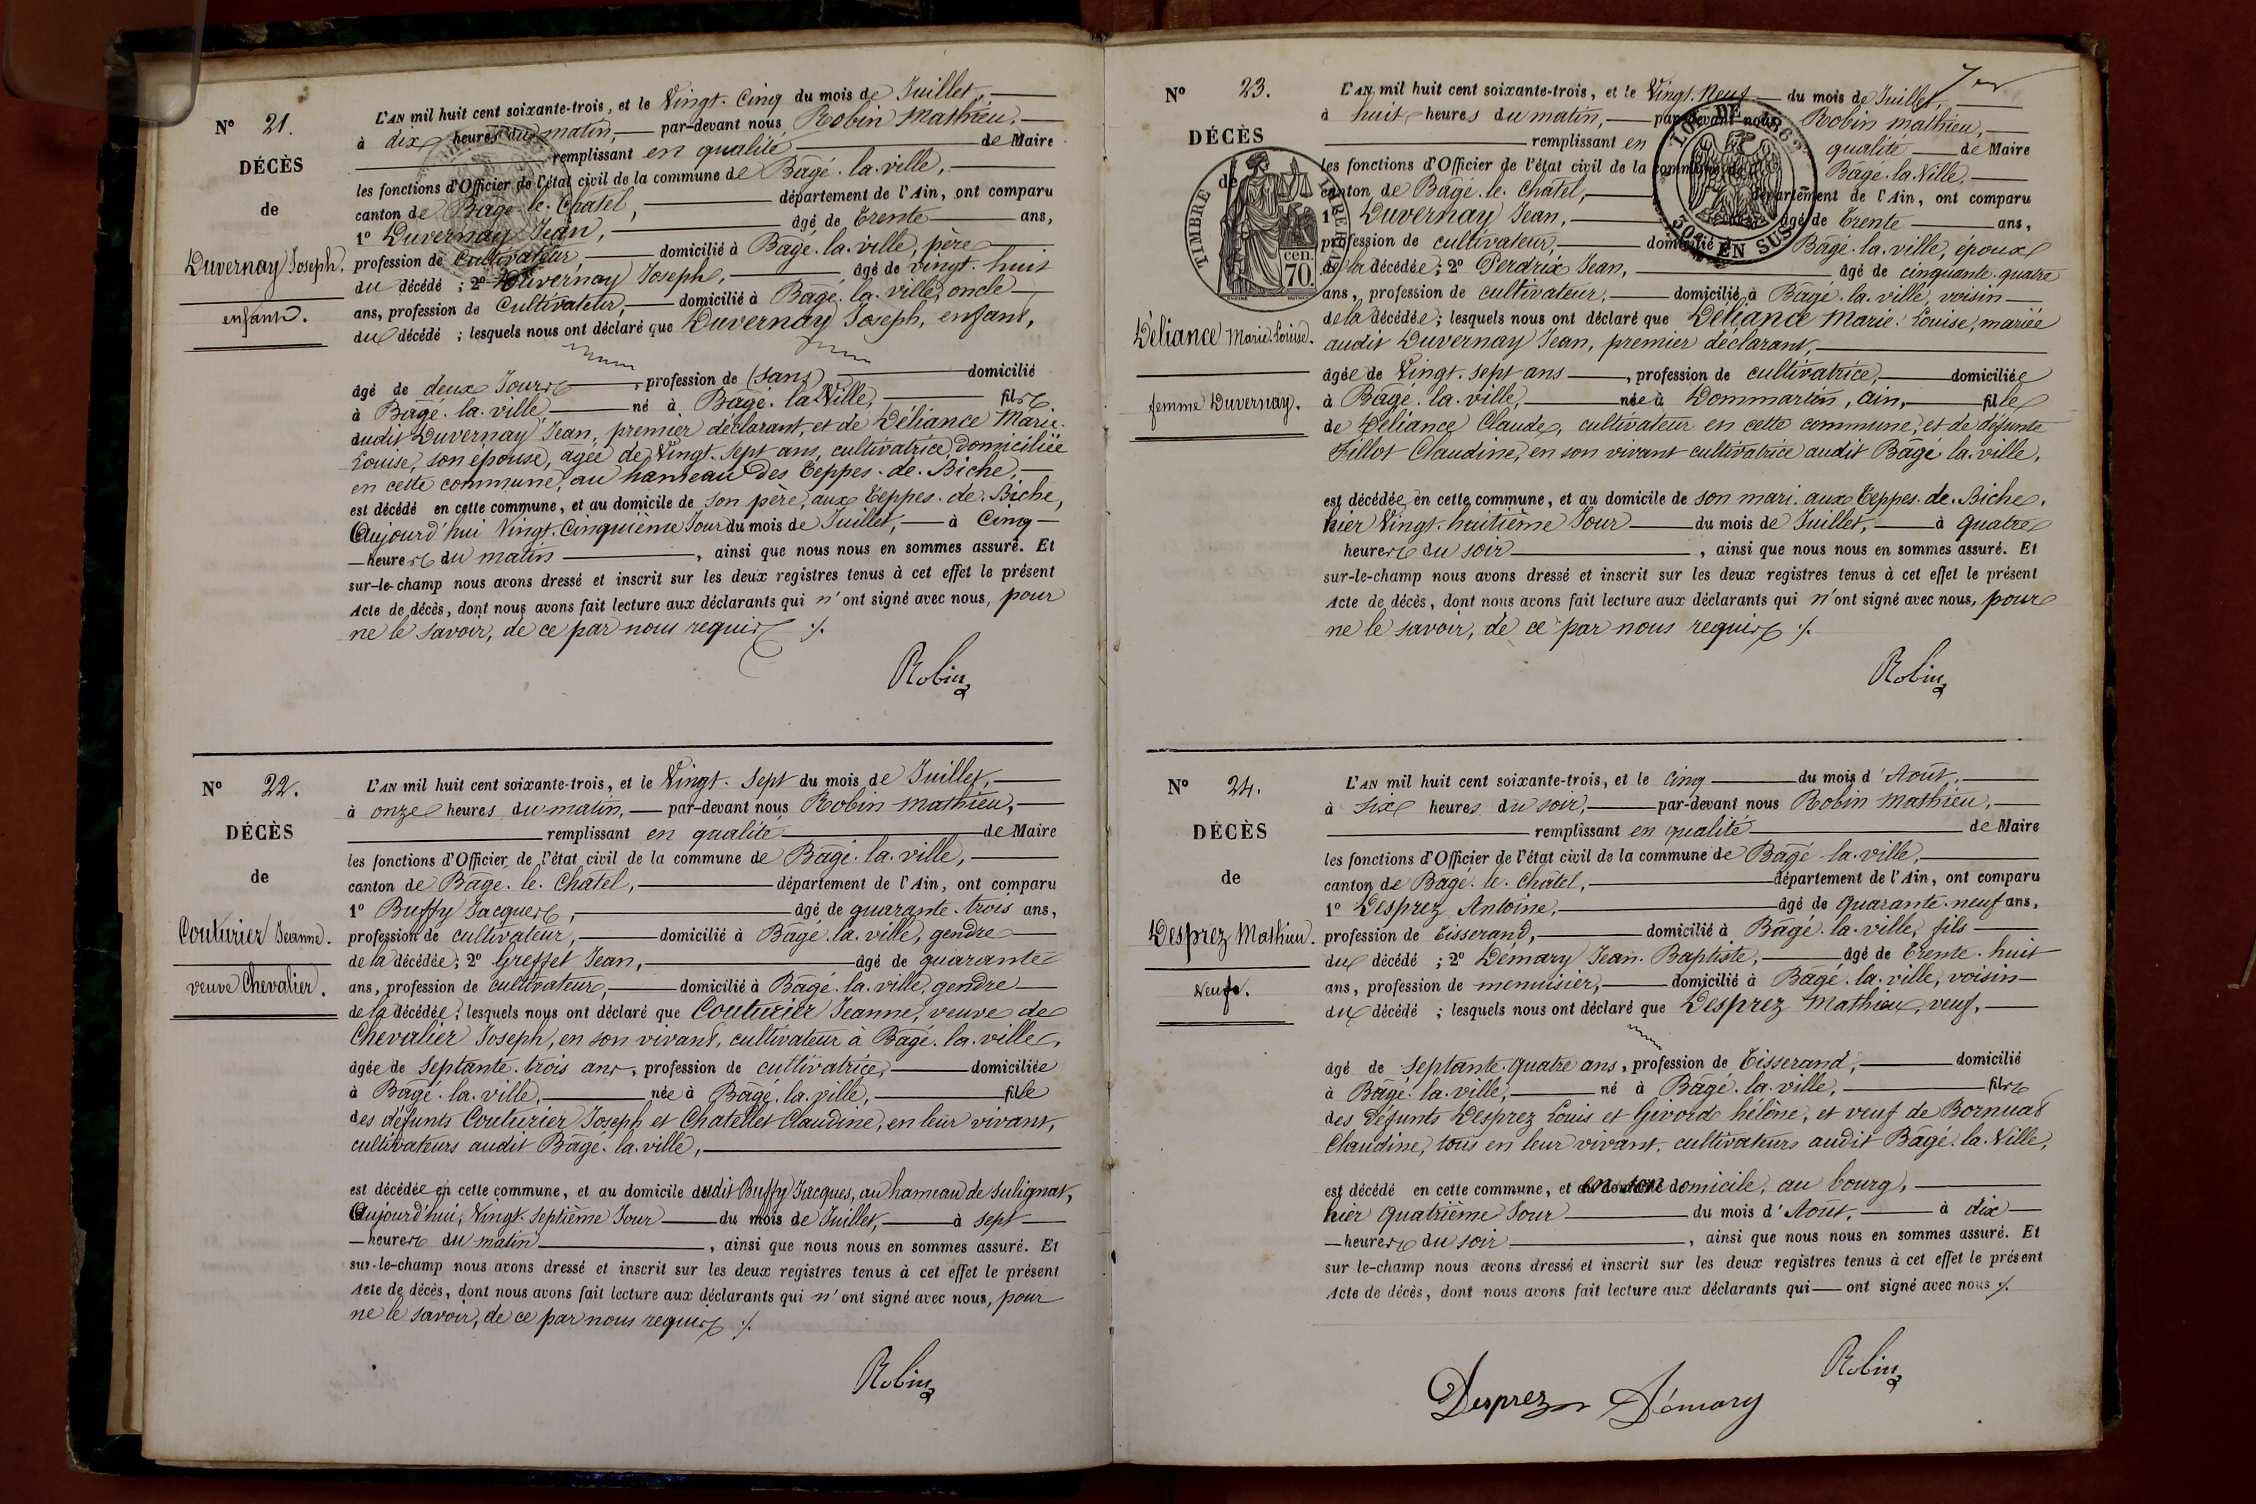 N° 21.
DÉCÈS
de
Duvernay Joseph.
enfant.
L'AN mil huit cent soixante-trois, et le Vingt-Cinq du mois de Juillet,
à dix heures du matin, par-devant nous Robin Mathieu,
remplissant en qualité de Maire
les fonctions d'Officier de l'état civil de la commune de Bâgé-la-ville,
canton de Bâgé-le-Chatel, département de l'Ain, ont comparu
1° Duvernay Jean, âgé de Trente ans,
profession de Cultivateur domicilié à Bagé-la-ville, père
du décédé ; 2° Duvernay Joseph, âgé de vingt-huit
ans, profession de Cultivateur, domicilié à Bâgé-la-ville, oncle
du décédé ; lesquels nous ont déclaré que Duvernay Joseph, enfant,
âgé de deux Jours, profession de (sans) domicilié
à Bâgé-la-ville né à Bâgé-la Ville, fils
dudit Duvernay Jean, premier déclarant, et de Déliance Marie-
Louise, son épouse, agée de Vingt-sept ans, cultivatrice, domiciliée
en cette commune, au hameau des Teppes-de-Biche,
est décédé en cette commune, et au domicile de son père, aux Teppes-de-Biche,
Aujourd'hui Vingt-Cinquième Jour du mois de Juillet, à Cinq
heures du matin, ainsi que nous nous en sommes assuré. Et
sur-le-champ nous avons dressé et inscrit sur les deux registres tenus à cet effet le présent
Acte de décès, dont nous avons fait lecture aux déclarants qui n'ont signé avec nous, pour
ne le savoir, de ce par nous requis ./.
Robin
N° 22.
DÉCÈS
de
Couturier Jeanne.
veuve Chevalier.
L'AN mil huit cent soixante-trois, et le Vingt-Sept du mois de Juillet,
à onze heures du matin, par-devant nous Robin Mathieu,
remplissant en qualité de Maire
les fonctions d'Officier de l'état civil de la commune de Bâgé-la-ville,
canton de Bâgé-le-Chatel, département de l'Ain, ont comparu
1° Buffy Jacques, âgé de quarante-trois ans,
profession de cultivateur, domicilié à Bâgé-la-ville, gendre
de la décédée ; 2° Greffet Jean, âgé de quarante
ans, profession de cultivateur, domicilié à Bâgé-la-ville, gendre
de la décédée ; lesquels nous ont déclaré que Couturier Jeanne, veuve de
Chevalier Joseph, en son vivant, cultivateur à Bâgé-la-ville,
âgée de septante-trois ans, profession de cultivatrice, domiciliée
à Bâgé-la-ville, née à Bâgé-la-ville, fille
des défunts Couturier Joseph et Chatellet Claudine, en leur vivant,
cultivateurs audit Bâgé-la-ville,
est décédée en cette commune, et au domicile dudit Buffy Jacques, au hameau de Sulignat,
Aujourd'hui, Vingt-Septième Jour du mois de Juillet, à sept
heures du matin, ainsi que nous nous en sommes assuré. Et
sur-le-champ nous avons dressé et inscrit sur les deux registres tenus à cet effet le présent
Acte de décès, dont nous avons fait lecture aux déclarants qui n'ont signé avec nous, pour
ne le savoir, de ce par nous requis ./.
Robin
N° 23.
DÉCÈS
de
Déliance Marie-Louise.
femme Duvernay.
TIMBRE IMPERIAL
70 cen.
LOI DE 1862
30es EN SUS
L'AN mil huit cent soixante-trois, et le Vingt-Neuf du mois de Juillet,
à huit heures du matin, par-devant nous Robin Mathieu,
remplissant en qualité de Maire
les fonctions d'Officier de l'état civil de la commune de Bâgé-la-Ville,
canton de Bâgé-le-Châtel, département de l'Ain, ont comparu
1° Duvernay Jean, âgé de Trente ans,
profession de cultivateur, domicilié à Bâgé-la-ville, époux
de la décédée ; 2° Perdrix Jean, âgé de cinquante-quatre
ans, profession de cultivateur, domicilié à Bâgé-la-ville, voisin
de la décédée ; lesquels nous ont déclaré que Déliance Marie-Louise, mariée
audit Duvernay Jean, premier déclarant,
âgée de Vingt-sept ans, profession de cultivatrice, domiciliée
à Bâgé-la-ville, née à Dommartin, Ain, fille
de Déliance Claude, cultivateur en cette commune, et de défunte
Fillot Claudine, en son vivant cultivatrice audit Bâgé-la-ville,
est décédée en cette commune, et au domicile de son mari, aux Teppes-de-Biche,
hier Vingt-huitième Jour du mois de Juillet, à quatre
heures du soir, ainsi que nous nous en sommes assuré. Et
sur-le-champ nous avons dressé et inscrit sur les deux registres tenus à cet effet le présent
Acte de décès, dont nous avons fait lecture aux déclarants qui n'ont signé avec nous, pour
ne le savoir, de ce par nous requis ./.
Robin
N° 24.
DÉCÈS
de
Desprez Mathieu.
Veuf.
L'AN mil huit cent soixante-trois, et le cinq du mois d'Août,
à six heures du soir, par-devant nous Robin Mathieu,
remplissant en qualité de Maire
les fonctions d'Officier de l'état civil de la commune de Bâgé-la-ville,
canton de Bâgé-le-Châtel, département de l'Ain, ont comparu
1° Desprez Antoine, âgé de quarante-neuf ans,
profession de Tisserand, domicilié à Bâgé-la-ville, fils
du décédé ; 2° Démary Jean-Baptiste, âgé de Trente-huit
ans, profession de menuisier, domicilié à Bâgé-la-ville, voisin
du décédé ; lesquels nous ont déclaré que Desprez Mathieu, veuf,
âgé de septante-quatre ans, profession de Tisserand, domicilié
à Bâgé-la-ville, né à Bâgé-la-ville, fils
des défunts Desprez Louis et Gevord hélène, et veuf de Bornuat
Claudine, tous en leur vivant, cultivateurs audit Bâgé-la-Ville,
est décédé en cette commune, et en son domicile, au bourg,
hier quatrième Jour du mois d'Aout, à dix
heures du soir, ainsi que nous nous en sommes assuré. Et
sur le-champ nous avons dressé et inscrit sur les deux registres tenus à cet effet le présent
Acte de décès, dont nous avons fait lecture aux déclarants qui ont signé avec nous ./.
Robin
Desprez Démary